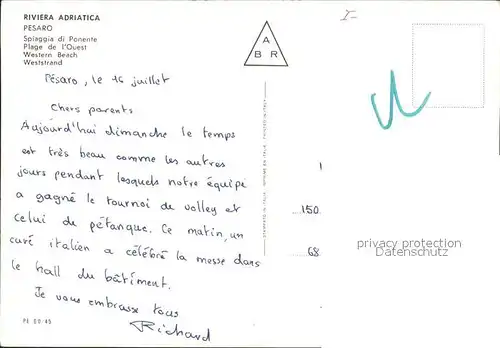 RIVIERA ADRIATICA
PESARO
Spiaggia di Ponente
Plage de l'Ouest
Western Beach
Weststrand
Pésaro, le 16 juillet
Chers parents
Aujourd'hui dimanche le temps
est très beau comme les autres
jours pendant lesquels notre équipe
a gagné le tournoi de volley et
celui de pétanque. Ce matin, un
curé italien a célébré la messe dans
le hall du bâtiment.
Je vous embrasse tous
Richard
PE 00/45
A
B R
I-
150
68
privacy protection
Datenschutz